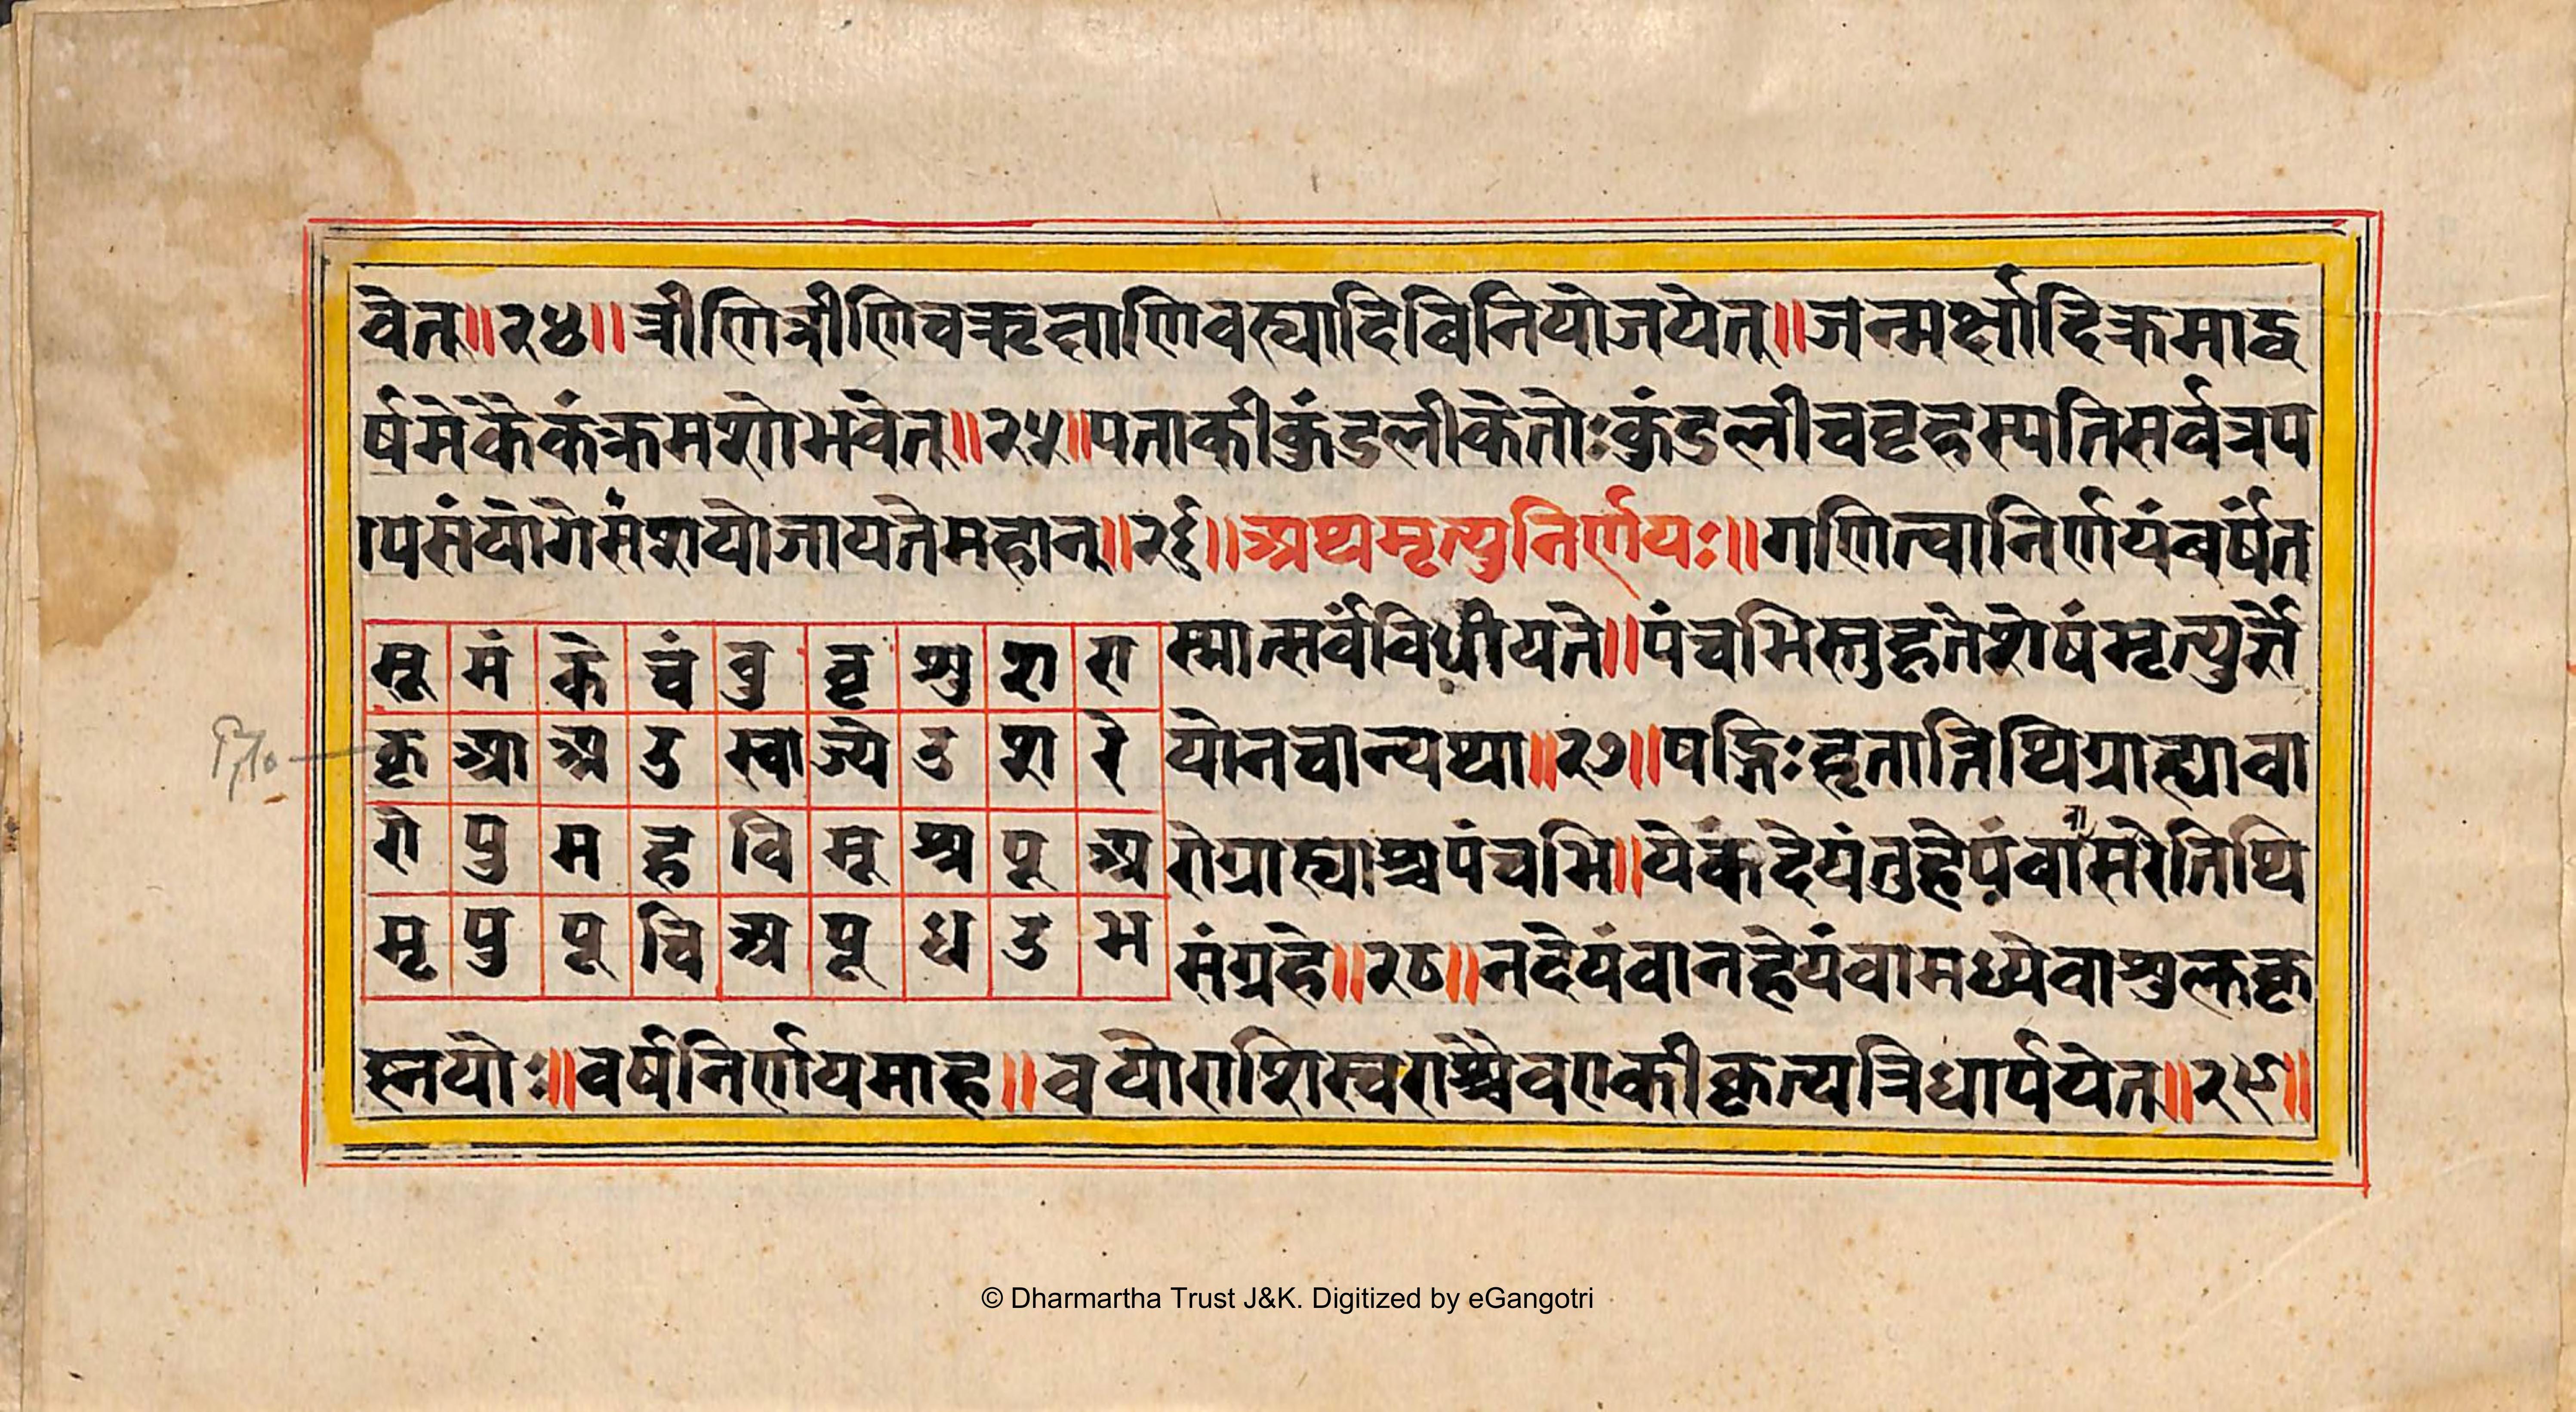 वेत्॥२४॥त्रीणित्रीणिचऋक्षाणिवह्न्यादिविनियोजयेत्॥जन्मर्क्षादिक्रमाद्व
र्षमेकैकंक्रमशोभवेत्॥२५॥पताकीकुंडलीकेतोःकुंडलीचबृहस्पतिसर्वत्रप
ापसंयोगेसंशयोजायतेमहान्॥२६॥अथमृत्युनिर्णयः॥गणित्वानिर्णयंबर्षंत
स्मात्सर्वंविधीयते॥पंचभिस्तुहृतेशेषंमृत्युर्ज्ञे
सू मं के चं बु बृ शु श रा
योनचान्यथा॥२७॥षड्भिःहृतात्तिथिग्राह्यावा
कृ आ अ उ स्वा ज्ये उ श रे
रोग्राह्याश्चपंचभि॥येकंदेयंतुहेयंवावासरेतिथि
रो पु म ह वि मू श्र पू अ
संग्रहे॥२८॥नदेयंवानहेयंवामध्येवाशुल्ककृ
मृ पु पू चि अ पू ध उ भ
स्नयोः॥वर्षनिर्णयमाह॥वयोराशिस्वराश्चैवएकीकृत्यत्रिधार्पयेत्॥२९॥
© Dharmartha Trust J&K. Digitized by eGangotri